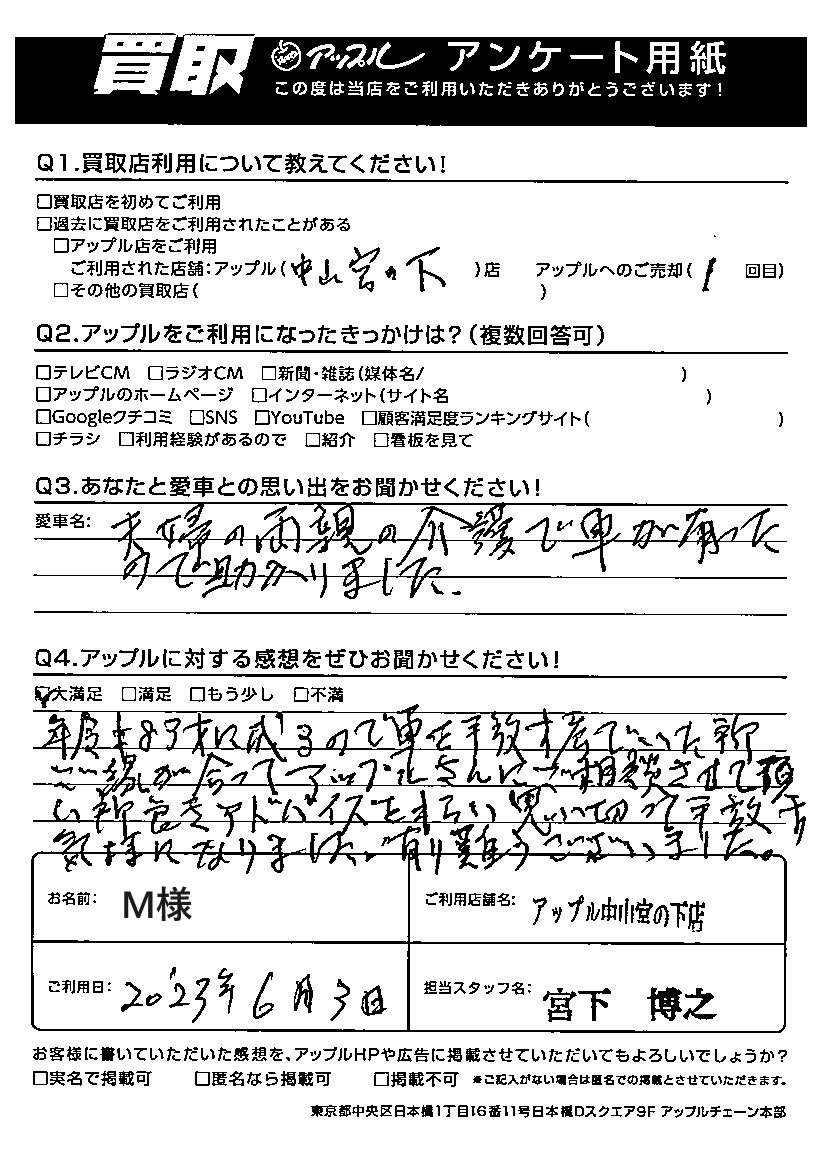 買取 アップル アンケート用紙
この度は当店をご利用いただきありがとうございます!
Q1.買取店利用について教えてください!
□買取店を初めてご利用
□過去に買取店をご利用されたことがある
□アップル店をご利用
ご利用された店舗:アップル(中山宮の下)店 アップルへのご売却(1回目)
□その他の買取店( )
Q2.アップルをご利用になったきっかけは?(複数回答可)
□テレビCM □ラジオCM □新聞・雑誌(媒体名/ )
□アップルのホームページ □インターネット(サイト名 )
□Googleクチコミ □SNS □YouTube □顧客満足度ランキングサイト( )
□チラシ □利用経験があるので □紹介 □看板を見て
Q3.あなたと愛車との思い出をお聞かせください!
愛車名: 夫婦の両親の介護で車が有った
ので助かりました.
Q4.アップルに対する感想をぜひお聞かせください!
☑大満足 □満足 □もう少し □不満
83才に成るので車を手放す
ご縁が合ってアップルさんにご相談させて頂
い アドバイスをもらい思い切って手放す
気持になりました。有り難うございました。
お名前: M様 ご利用店舗名: アップル中山宮の下店
ご利用日: 2023年6月3日 担当スタッフ名: 宮下 博之
お客様に書いていただいた感想を、アップルHPや広告に掲載させていただいてもよろしいでしょうか?
□実名で掲載可 □匿名なら掲載可 □掲載不可 ※ご記入がない場合は匿名での掲載とさせていただきます。
東京都中央区日本橋1丁目16番11号日本橋Dスクエア9F アップルチェーン本部